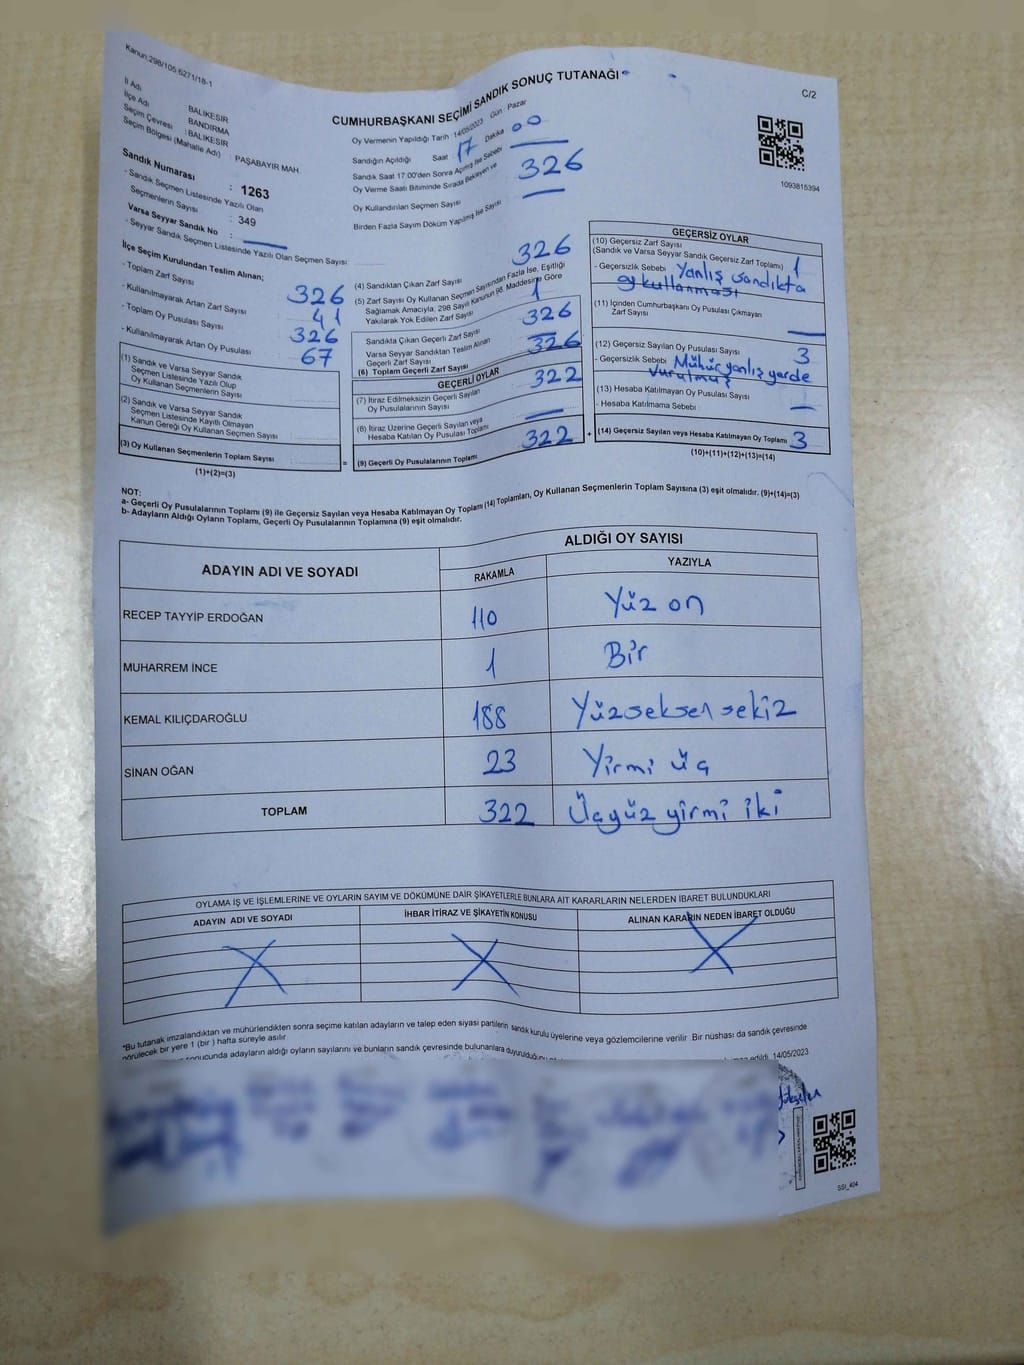 Kanun:298/105 6271/18-1
C/2
CUMHURBAŞKANI SEÇİMİ SANDIK SONUÇ TUTANAĞI
İl Adı : BALIKESİR
İlçe Adı : BANDIRMA
Seçim Çevresi : BALIKESİR
Seçim Bölgesi (Mahalle Adı) : PAŞABAYIR MAH
Sandık Numarası : 1263
- Sandık Seçmen Listesinde Yazılı Olan
Seçmenlerin Sayısı : 349
Varsa Seyyar Sandık No :
- Seyyar Sandık Seçmen Listesinde Yazılı Olan Seçmen Sayısı
Oy Vermenin Yapıldığı Tarih 14/05/2023 Gün : Pazar
Sandığın Açıldığı Saat 17 Dakika 00
Sandık Saat 17:00'den Sonra Açılmış İse Sebebi
Oy Verme Saati Bitiminde Sırada Bekleyen ve
Oy Kullandırılan Seçmen Sayısı 326
Birden Fazla Sayım Döküm Yapılmış İse Sayısı
1093815394
İlçe Seçim Kurulundan Teslim Alınan;
- Toplam Zarf Sayısı 326
- Kullanılmayarak Artan Zarf Sayısı 41
- Toplam Oy Pusulası Sayısı 326
- Kullanılmayarak Artan Oy Pusulası 67
(1) Sandık ve Varsa Seyyar Sandık
Seçmen Listesinde Yazılı Olup
Oy Kullanan Seçmenlerin Sayısı
(2) Sandık ve Varsa Seyyar Sandık
Seçmen Listesinde Kayıtlı Olmayan
Kanun Gereği Oy Kullanan Seçmen Sayısı
(3) Oy Kullanan Seçmenlerin Toplam Sayısı
(1)+(2)=(3)
(4) Sandıktan Çıkan Zarf Sayısı 326
(5) Zarf Sayısı Oy Kullanan Seçmen Sayısından Fazla İse, Eşitliği
Sağlamak Amacıyla, 298 Sayılı Kanunun 98. Maddesine Göre
Yakılarak Yok Edilen Zarf Sayısı 1
Sandıkta Çıkan Geçerli Zarf Sayısı 326
Varsa Seyyar Sandıktan Teslim Alınan
Geçerli Zarf Sayısı
(6) Toplam Geçerli Zarf Sayısı 326
GEÇERLİ OYLAR
(7) İtiraz Edilmeksizin Geçerli Sayılan
Oy Pusulalarının Sayısı 322
(8) İtiraz Üzerine Geçerli Sayılan veya
Hesaba Katılan Oy Pusulası Toplamı
(9) Geçerli Oy Pusulalarının Toplamı 322
GEÇERSİZ OYLAR
(10) Geçersiz Zarf Sayısı
(Sandık ve Varsa Seyyar Sandık Geçersiz Zarf Toplamı) 1
- Geçersizlik Sebebi Yanlış sandıkta
oy kullanması
(11) İçinden Cumhurbaşkanı Oy Pusulası Çıkmayan
Zarf Sayısı
(12) Geçersiz Sayılan Oy Pusulası Sayısı 3
- Geçersizlik Sebebi Mühür yanlış yerde
vurulmuş
(13) Hesaba Katılmayan Oy Pusulası Sayısı
- Hesaba Katılmama Sebebi
(14) Geçersiz Sayılan veya Hesaba Katılmayan Oy Toplamı 3
(10)+(11)+(12)+(13)=(14)
NOT:
a- Geçerli Oy Pusulalarının Toplamı (9) ile Geçersiz Sayılan veya Hesaba Katılmayan Oy Toplamı (14) Toplamları, Oy Kullanan Seçmenlerin Toplam Sayısına (3) eşit olmalıdır. (9)+(14)=(3)
b- Adayların Aldığı Oyların Toplamı, Geçerli Oy Pusulalarının Toplamına (9) eşit olmalıdır.
ADAYIN ADI VE SOYADI
ALDIĞI OY SAYISI
RAKAMLA YAZIYLA
RECEP TAYYİP ERDOĞAN 110 Yüz on
MUHARREM İNCE 1 Bir
KEMAL KILIÇDAROĞLU 188 Yüzseksen sekiz
SİNAN OĞAN 23 Yirmi üç
TOPLAM 322 Üçyüz yirmi iki
OYLAMA İŞ VE İŞLEMLERİNE VE OYLARIN SAYIM VE DÖKÜMÜNE DAİR ŞİKAYETLERLE BUNLARA AİT KARARLARIN NELERDEN İBARET BULUNDUKLARI
ADAYIN ADI VE SOYADI İHBAR İTİRAZ VE ŞİKAYETİN KONUSU ALINAN KARARIN NEDEN İBARET OLDUĞU
*Bu tutanak imzalandıktan ve mühürlendikten sonra seçime katılan adayların ve talep eden siyasi partilerin sandık kurulu üyelerine veya gözlemcilerine verilir. Bir nüshası da sandık çevresinde
görülecek bir yere 1 (bir) hafta süreyle asılır
sonucunda adayların aldığı oyların sayılarını ve bunların sandık çevresinde bulunanlara duyurulduğunu
edildi. 14/05/2023
SSI_404